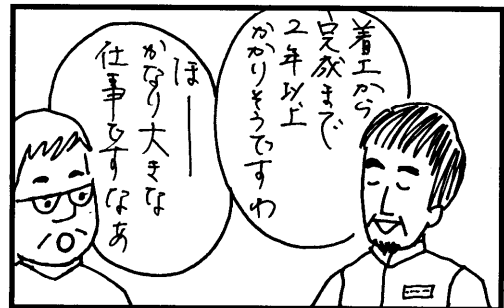 着工から
完成まで
2年以上
かかりそうですわ
ほーー
かなり大きな
仕事ですなあ